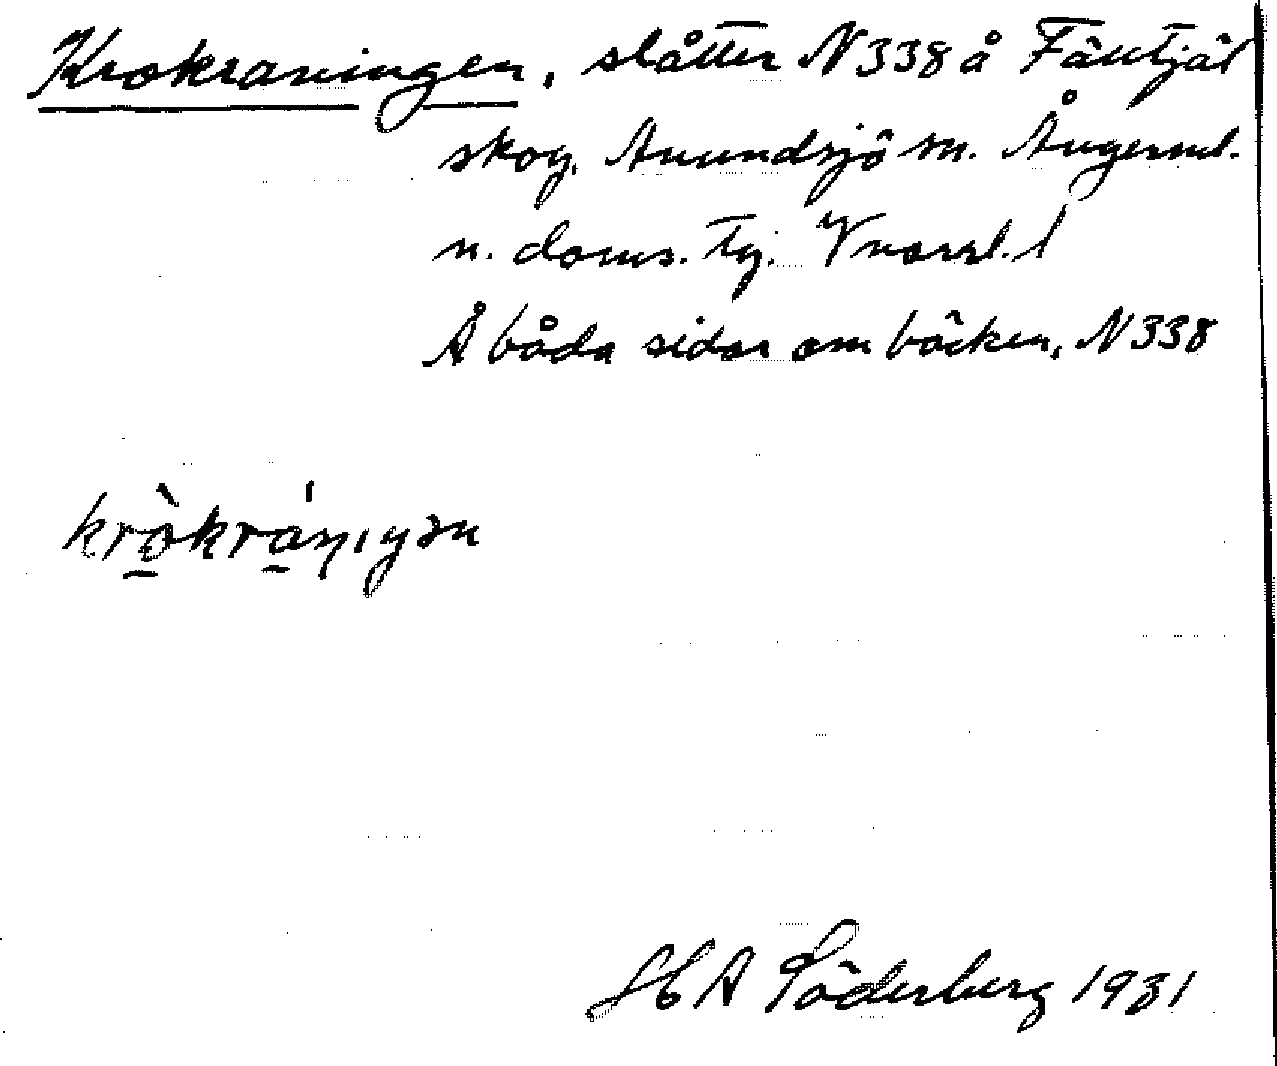 Krokraningen, slåtter N338 å Fälltjäl
skog, Anundsjö sn. Ångerml.
n. doms. Tj.
Å båda sidor om bäcken, N338
kròkráŋıŋən
H A Söderberg 1931